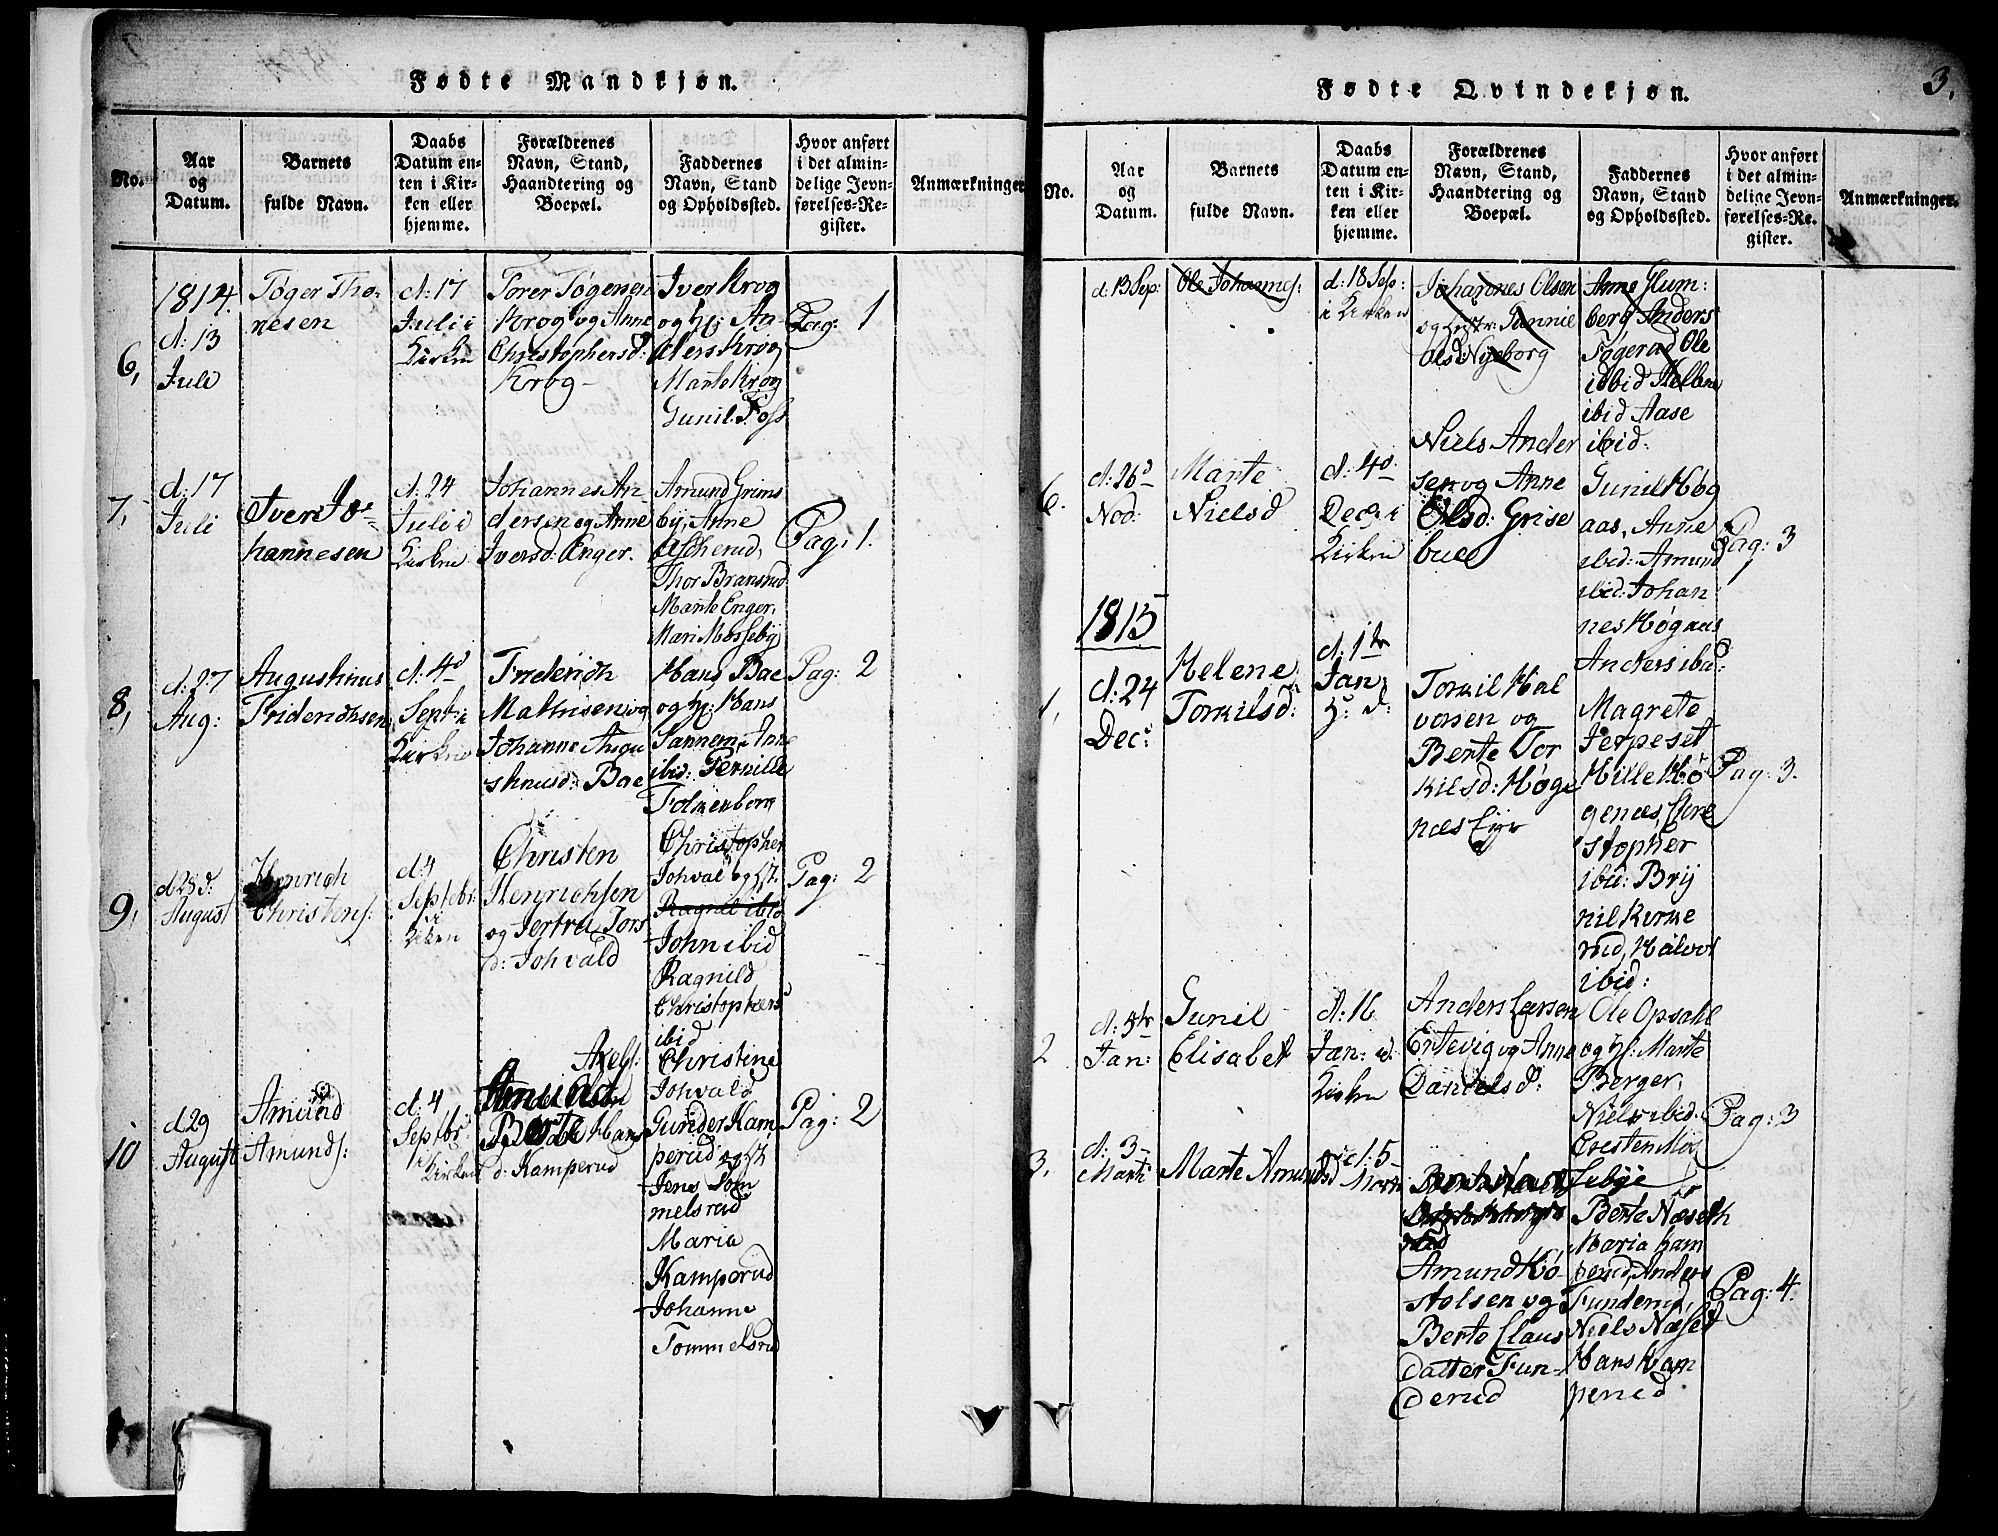 Fødte Mandkjøn.
No.
Aar
og
Datum.
Barnets
fulde Navn.
Daabs
Datum en-
ten i Kir-
ken eller
hjemme.
Forældrenes
Navn, Stand,
Haandtering og
Boepæl.
Faddernes
Navn, Stand
og Opholdssted.
Hvor anført
i det almin-
delige Jevn-
førelses-Re-
gister.
Anmærkninger
6,
1814.
d: 13
Juli
Tøger Tho-
nesen
d: 17
Juli i
Kirken
Torer Tøgensen
Krog og Anne
Christophersd:
Krog-
Iver Krog
og Hj: An-
ders Krog
Marte Krog
Gunil. Foss
Pag: 1
7,
d: 17
Juli
Iver Jo-
hannesen
d: 24
Juli i
Kirken
Johannes An-
dersen og Anne
Iversd: Enger.
Amund Grims
by, Anne
Ascherud,
Thor Bransrud
Marte Enger,
Mari Mosseby
Pag: 1.
8,
d: 27
Aug:
Augustinus
Friderichsen
d: 4d
Sept: i
Kirken
Friderich
Mathisen og
Johanne Augu
stinusd: Bae
Hans Bae
og Hj: Hans
Sannem, Anne
ibid: Pernille
Folkenborg
Pag: 2
9,
d 25 d:
August
Henrich
Christens:
d: 4
Septbr:
i
Kirken
Christen
Henrichsen
og Jertru Tors
d: Johvald
Christopher
Johval og Hst:
Ragnil ibid
John ibid
Ragnild
Christophers
ibid
Christine
Johvald
Pag: 2
10
d 29
August
Amund
Amunds:
d: 4
Septbr:
i Kirken
Axels:
Amund
Berte Hans
d: Kamperud
Gunder Kam
perud og Hst:
Jens Tom
melsrud
Maria
Kamperud
Johanne
Tommelsrud
Pag: 2
Fødte Qvindekjøn.
3.
No.
Aar
og
Datum.
Barnets
fulde Navn.
Daabs
Datum en-
ten i Kir-
ken eller
hjemme.
Forældrenes
Navn, Stand,
Haandtering og
Boepæl.
Faddernes
Navn, Stand
og Opholdssted.
Hvor anført
i det almin-
delige Jevn-
førelses-Re-
gister.
Anmærkninger
d: 13 Sep:
Ole Johannes:
d: 18 Sep:
i Kirken
Johannes Olsen
og Hustr: Gunnil
Olsd: Nyeborg
Anne Glum:
berg Anders
Togerud Ole
ibid Hellene
ibid Aase
ibid:
6.
d: 26d
Nov:
Marte
Nielsd
d: 4d
Dec: i
Kirken
Niels Ander
sen og Anne
Olsd: Grise
bue
Gunil Høg
aas, Anne
ibid: Amund
ibid: Johan
nes Høgaas
Anders ibid:
Pag: 3
1815
1,
d: 24
Dec:
Helene
Torkilsd:
d: 1te
Jan:
H: d:
Torkil Hal
vorsen og
Berte Tor
kilsd: Høge
næs Eye
Magrete
Jerpeset
Hille Hø
genæs, Chre
stopher
ibid: Bry
nil Kirke
rud, Halvor
ibid:
Pag: 3.
2
d: 5te
Jan:
Gunil
Elisabet
d: 16
Jan: i
Kirken
Anders Larsen
Ertevig og Anne
Danielsd:
Ole Opsahl
og Hj: Marte
Berger,
Niels ibid:
Cresten Mos
sebye
Pag: 3
3.
d: 3
Marti
Marte Amundsd
d: 5
Marti
rud
Amund Kø
stolsen og
Berte Claus
datter Fun-
derud
Berte Næseth
Maria Kam
perud, Anders
Funderud,
Niels Næset
Hans Kam
perud
Pag: 4.